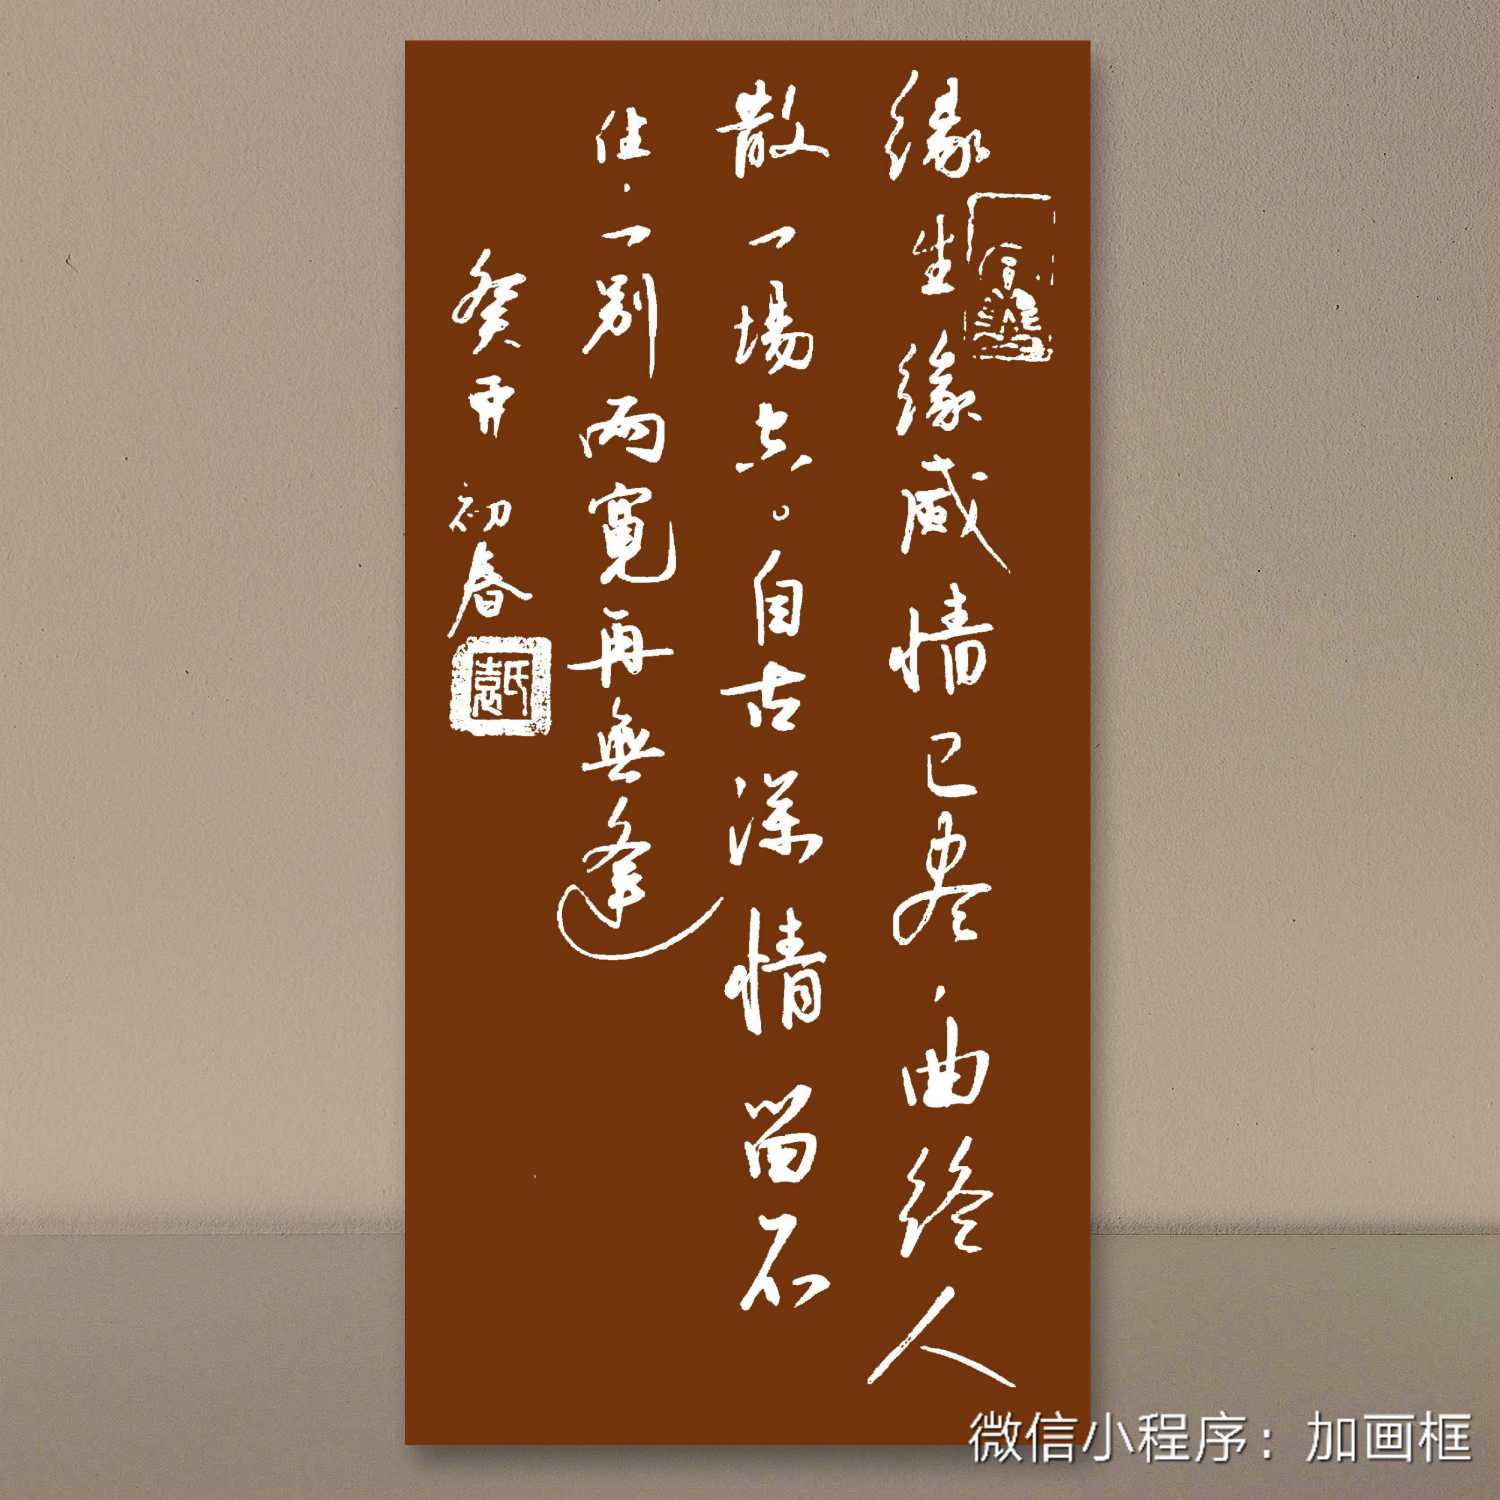 緣生緣烕情已尽，曲终人
散一場空。自古深情留不
住，一别兩寬再無逢
癸卯初春
袁氏
微信小程序：加画框